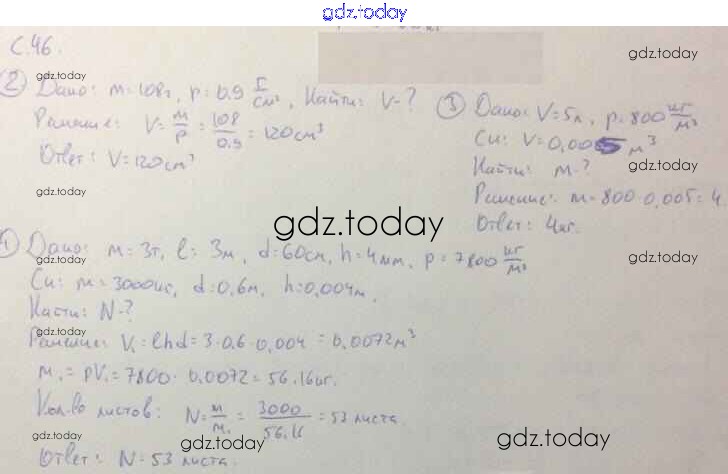 gdz.today
С.46.
gdz.today
② Дано: m=108г, ρ=0.9 г/см³, Найти: V-?
Решение: V= m/ρ = 108/0.9 = 120см³
Ответ: V=120см³
gdz.today
③ Дано: V=5л, ρ=800 кг/м³
Си: V=0,005 м³
gdz.today
Найти: m-?
Решение: m=800·0,005=4
Ответ: 4кг.
gdz.today
gdz.today
① Дано: m=3т, l=3м, d=60см, h=4мм, ρ=7800 кг/м³
gdz.today
gdz.today
Си: m=3000кг, d=0.6м, h=0,004м.
Найти: N-?
gdz.today
Решение: V₁=lhd=3·0.6·0,004=0.0072м³
m₁=ρV₁=7800·0,0072=56.16кг.
gdz.today
Кол-во листов: N= m/m₁ = 3000/56.16 = 53 листа.
gdz.today
gdz.today
gdz.today
Ответ: N=53 листа.